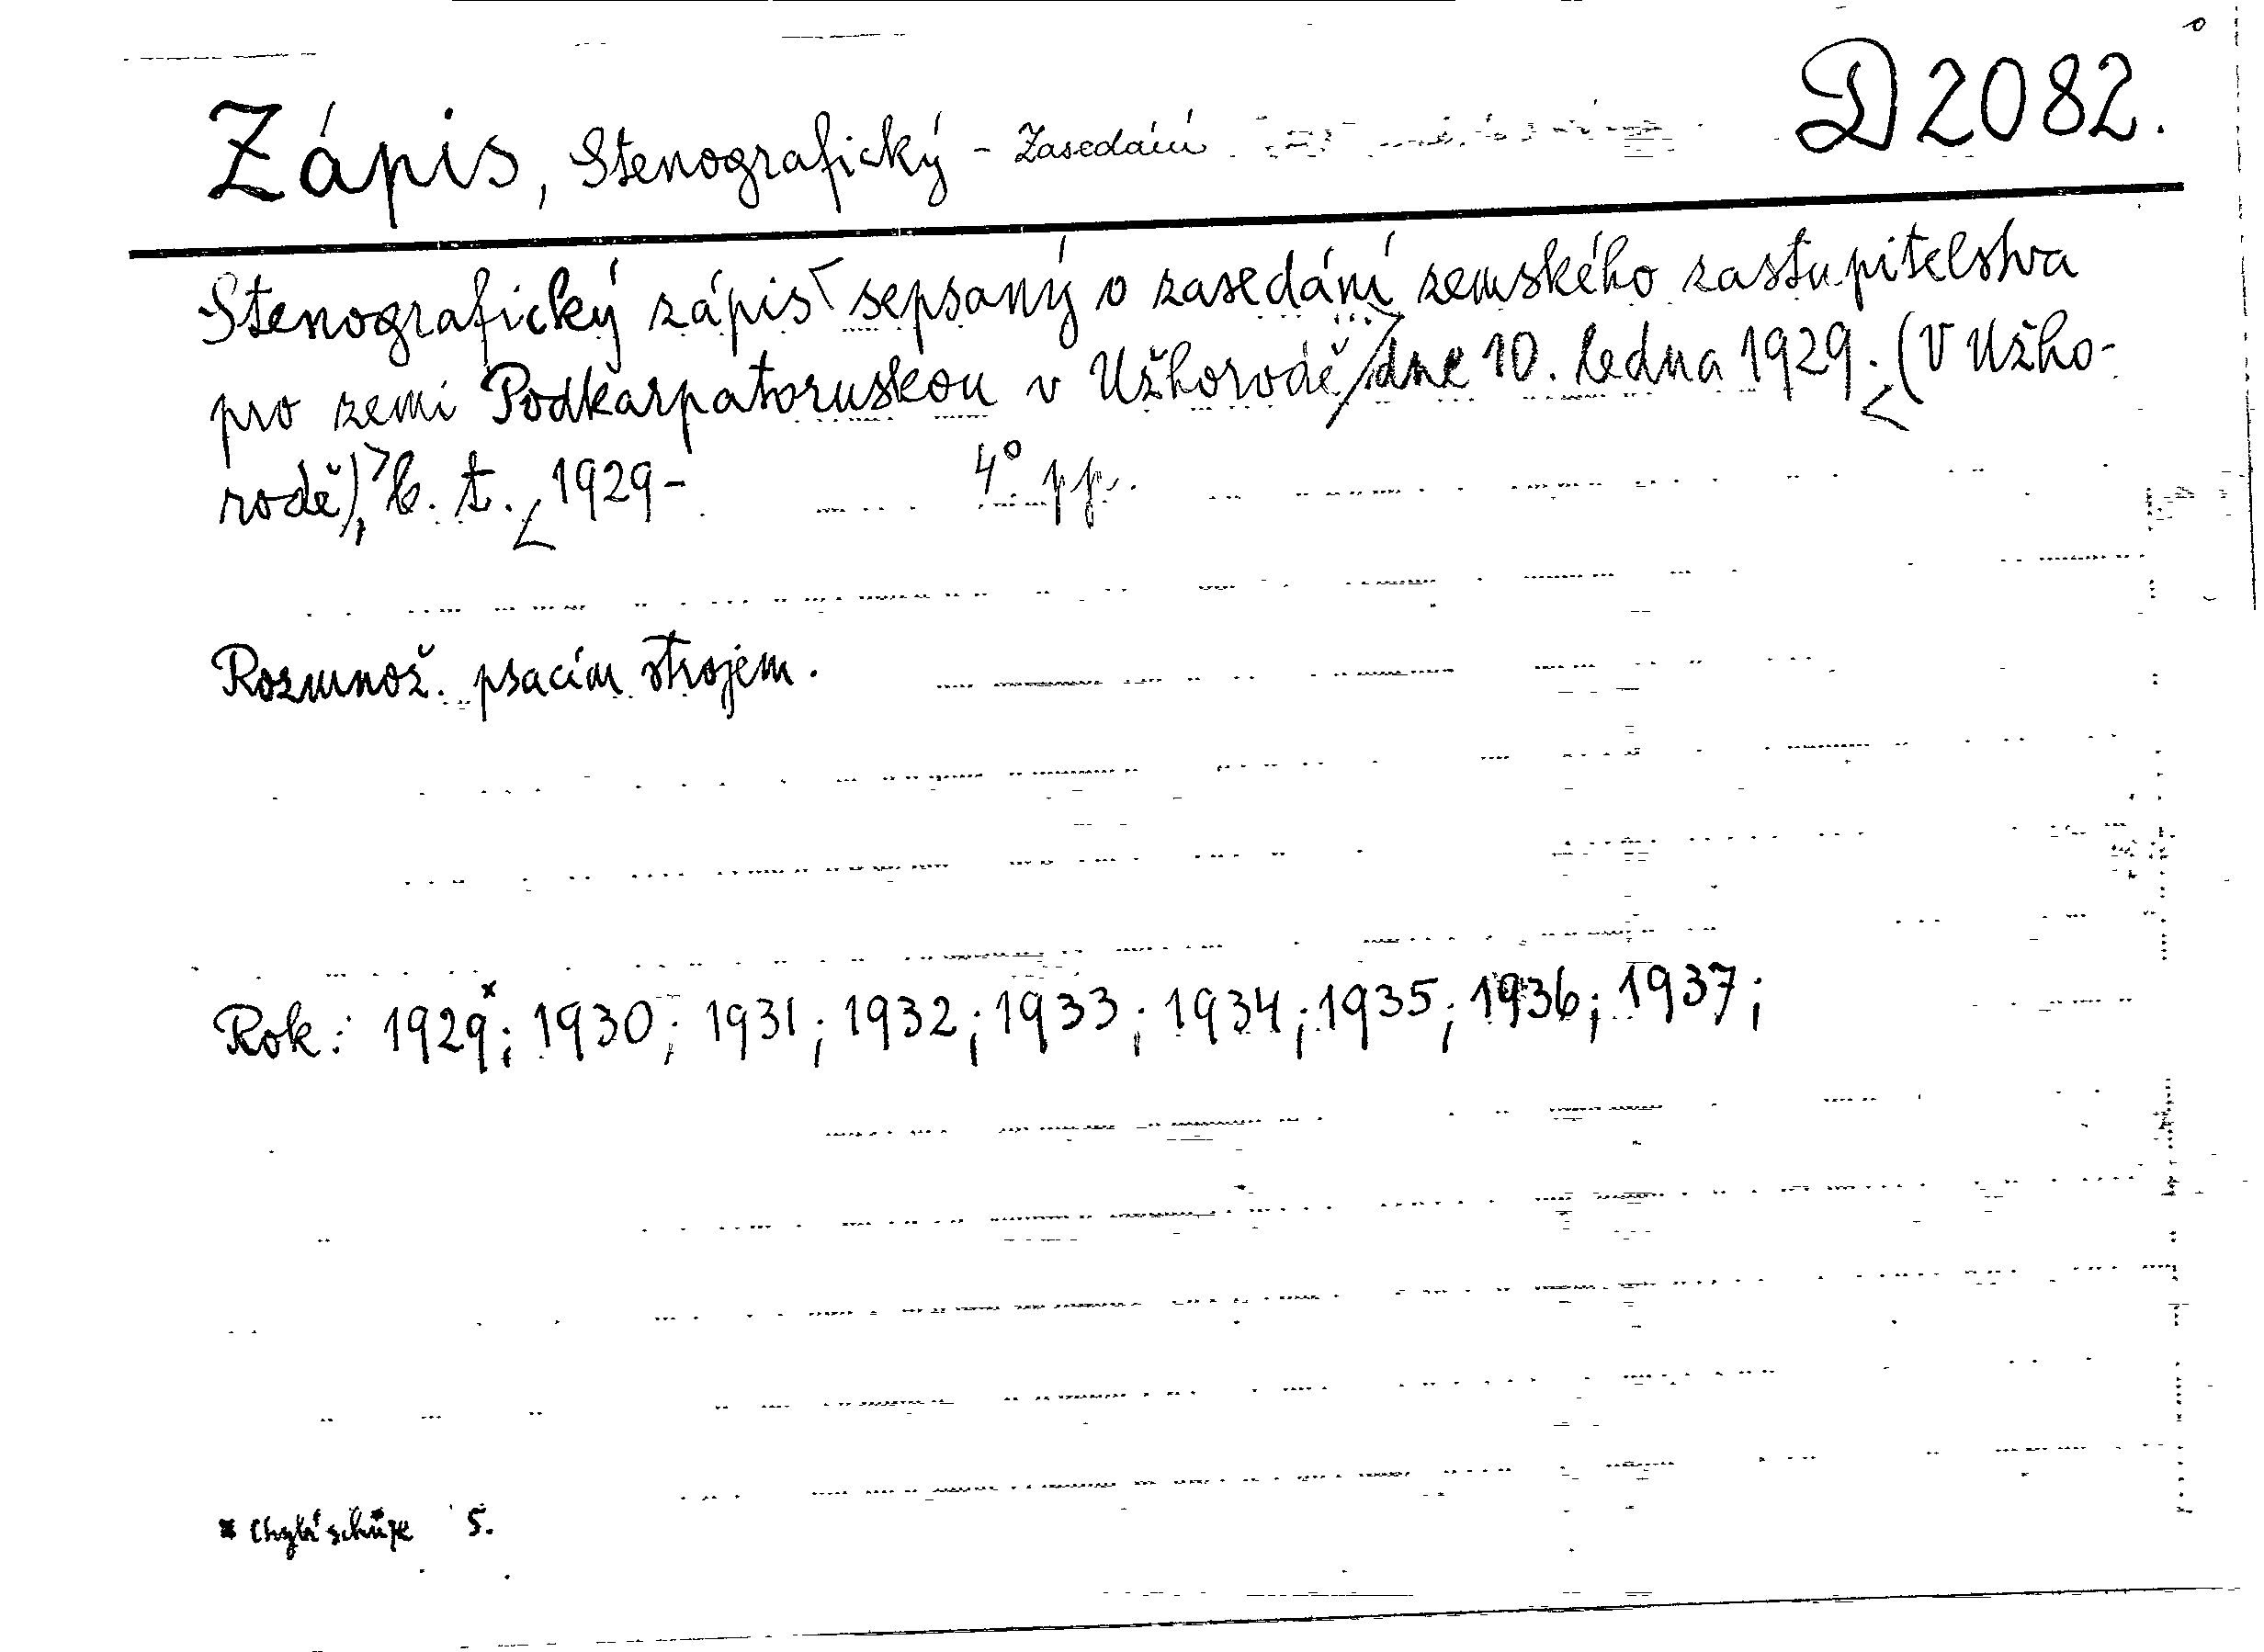 D 2082.
Zápis, Stenografický - Zasedání
Stenografický zápis sepsaný o zasedání zemského zastupitelstva
pro zemi Podkarpatoruskou v Užhorodě dne 10. ledna 1929. (V Užho-
rodě), b. t. 1929- 4° pp.
Rozmnož. psacím strojem.
Rok: 1929x; 1930; 1931; 1932; 1933; 1934; 1935; 1936; 1937;
x Chybí schůze 5.